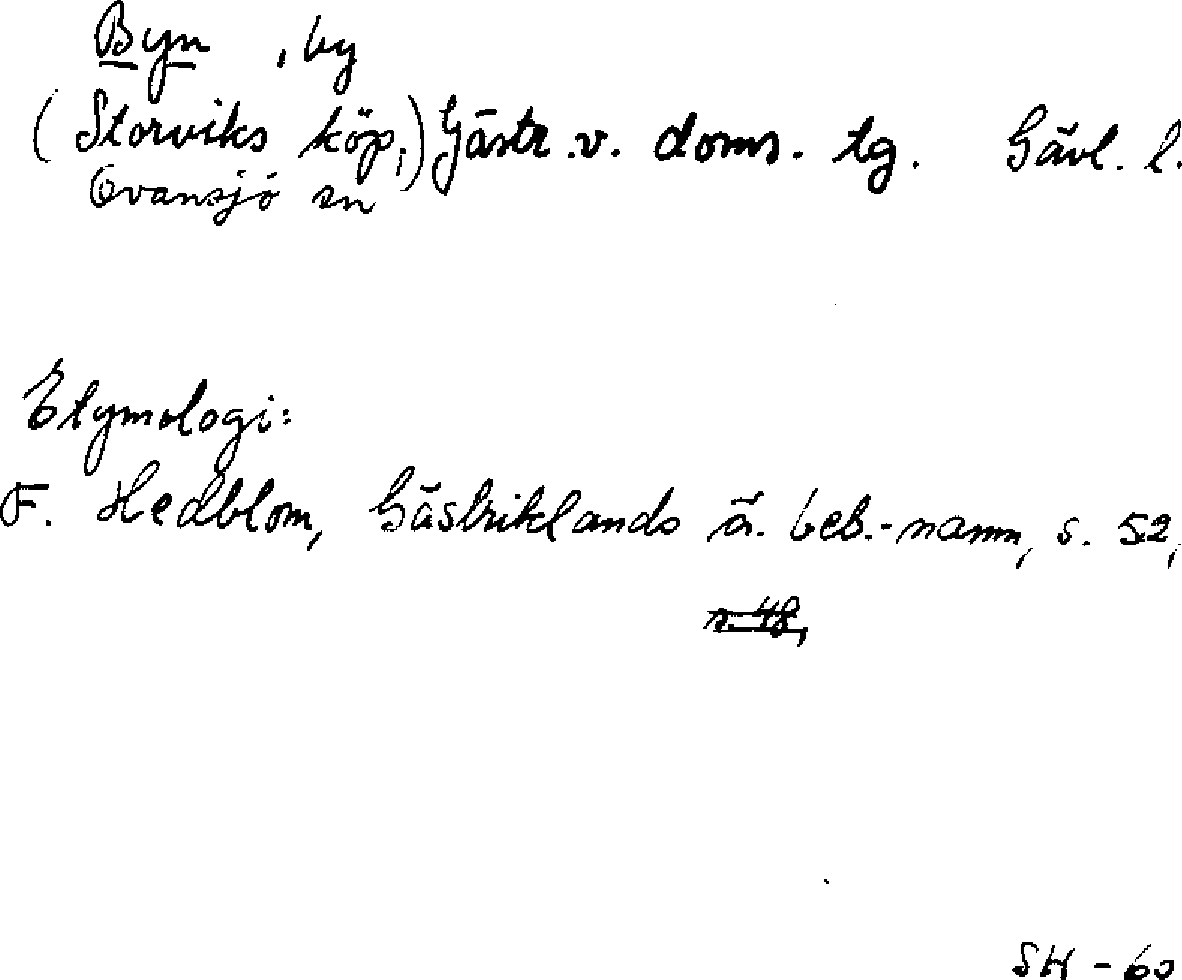 Byn , by
(Storviks köp,) Gästr. v. doms. tg. Gävl. l.
Ovansjö sn
Etymologi:
F. Hedblom, Gästriklands ä. beb.-namn, s. 52,
s. 48,
SH - 60